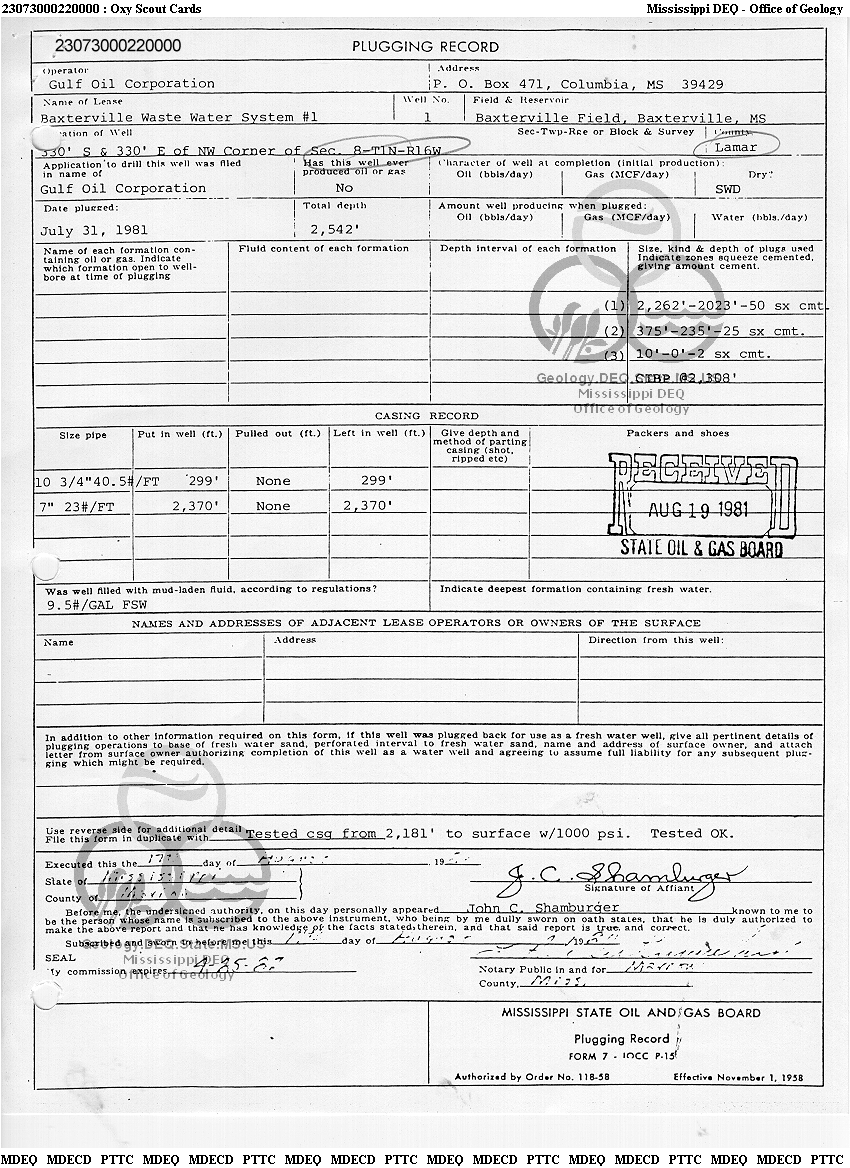 23073000220000 : Oxy Scout Cards Mississippi DEQ - Office of Geology
23073000220000 PLUGGING RECORD
Operator Address
Gulf Oil Corporation P. O. Box 471, Columbia, MS 39429
Name of Lease Well No. Field & Reservoir
Baxterville Waste Water System #1 1 Baxterville Field, Baxterville, MS
Location of Well Sec-Twp-Rge or Block & Survey County
330' S & 330' E of NW Corner of Sec. 8-T1N-R16W Lamar
Application to drill this well was filed in name of Has this well ever produced oil or gas Character of well at completion (initial production):
Oil (bbls/day) Gas (MCF/day) Dry?
Gulf Oil Corporation No SWD
Date plugged: Total depth Amount well producing when plugged:
Oil (bbls/day) Gas (MCF/day) Water (bbls/day)
July 31, 1981 2,542'
Name of each formation containing oil or gas. Indicate which formation open to wellbore at time of plugging Fluid content of each formation Depth interval of each formation Size, kind & depth of plugs used Indicate zones squeeze cemented, giving amount cement.
(1) 2,262'-2023'-50 sx cmt.
(2) 375'-235'-25 sx cmt.
(3) 10'-0'-2 sx cmt.
CIBP @2,308'
Geology.DEQ.State.MS.US
Mississippi DEQ
Office of Geology
CASING RECORD
Size pipe Put in well (ft.) Pulled out (ft.) Left in well (ft.) Give depth and method of parting casing (shot, ripped etc) Packers and shoes
10 3/4"40.5#/FT 299' None 299'
7" 23#/FT 2,370' None 2,370'
RECEIVED
AUG 19 1981
STATE OIL & GAS BOARD
Was well filled with mud-laden fluid, according to regulations? Indicate deepest formation containing fresh water.
9.5#/GAL FSW
NAMES AND ADDRESSES OF ADJACENT LEASE OPERATORS OR OWNERS OF THE SURFACE
Name Address Direction from this well:
In addition to other information required on this form, if this well was plugged back for use as a fresh water well, give all pertinent details of
plugging operations to base of fresh water sand, perforated interval to fresh water sand, name and address of surface owner, and attach
letter from surface owner authorizing completion of this well as a water well and agreeing to assume full liability for any subsequent plug-
ging which might be required.
Use reverse side for additional detail
File this form in duplicate with Tested csg from 2,181' to surface w/1000 psi. Tested OK.
Executed this the day of August, 19
State of Mississippi J. C. Shamburger
Signature of Affiant
County of Marion
Before me, the undersigned authority, on this day personally appeared John C. Shamburger known to me to
be the person whose name is subscribed to the above instrument, who being by me dully sworn on oath states, that he is duly authorized to
make the above report and that he has knowledge of the facts stated therein, and that said report is true and correct.
Subscribed and sworn to before me this day of August, 19
SEAL
My commission expires 4-25-82 Notary Public in and for Marion
County, Miss.
Geology.DEQ.State.MS.US
Mississippi DEQ
Office of Geology
MISSISSIPPI STATE OIL AND GAS BOARD
Plugging Record
FORM 7 - IOCC P-15
Authorized by Order No. 118-58 Effective November 1, 1958
MDEQ MDECD PTTC MDEQ MDECD PTTC MDEQ MDECD PTTC MDEQ MDECD PTTC MDEQ MDECD PTTC MDEQ MDECD PTTC